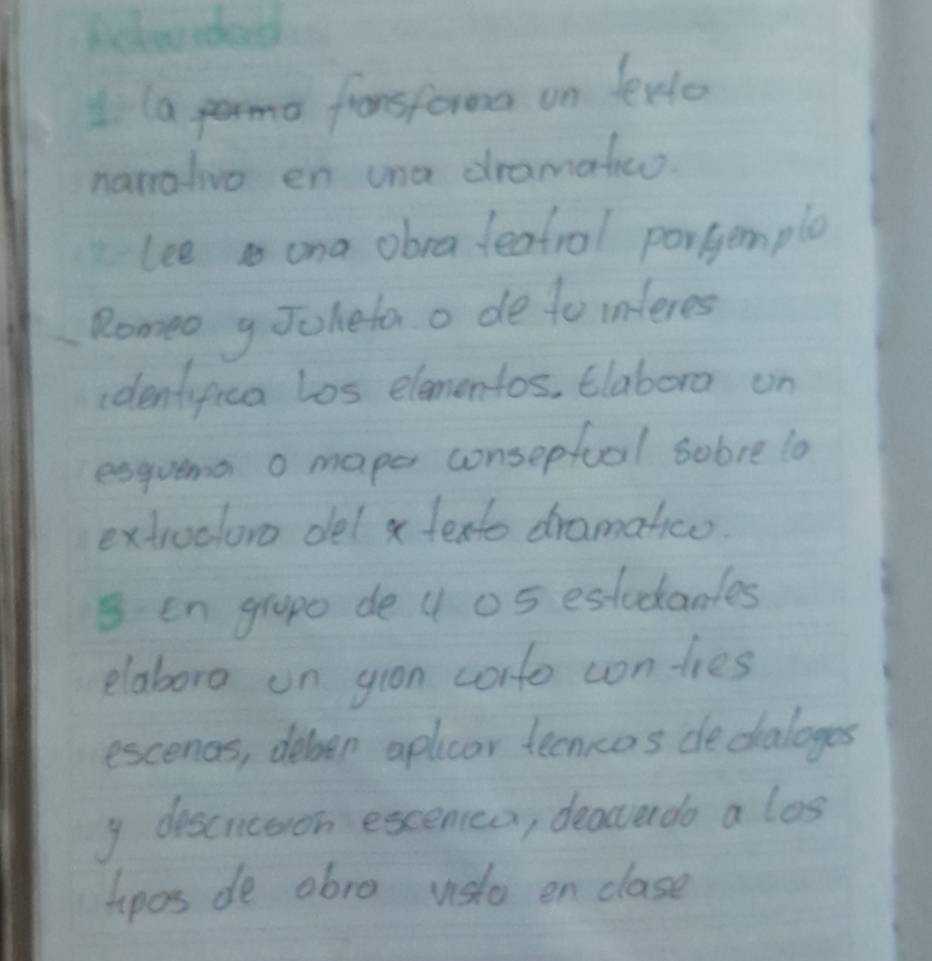 Actividad
1. la forma transforma un texto
narrativo en una dramatico.
2. lee una obra teatral porejemplo
Romeo y Julieta o de tu interes
identifica los elementos. Elabora un
esquema o mapa conseptual sobre la
extructura del x texto dramatico.
3 En grupo de 4 o 5 estudiantes
elabora un gion corto con tres
escenas, deben aplicar tecnicas de dialogos
y descricsion escenica, deacuerdo a los
tipos de obra visto en clase